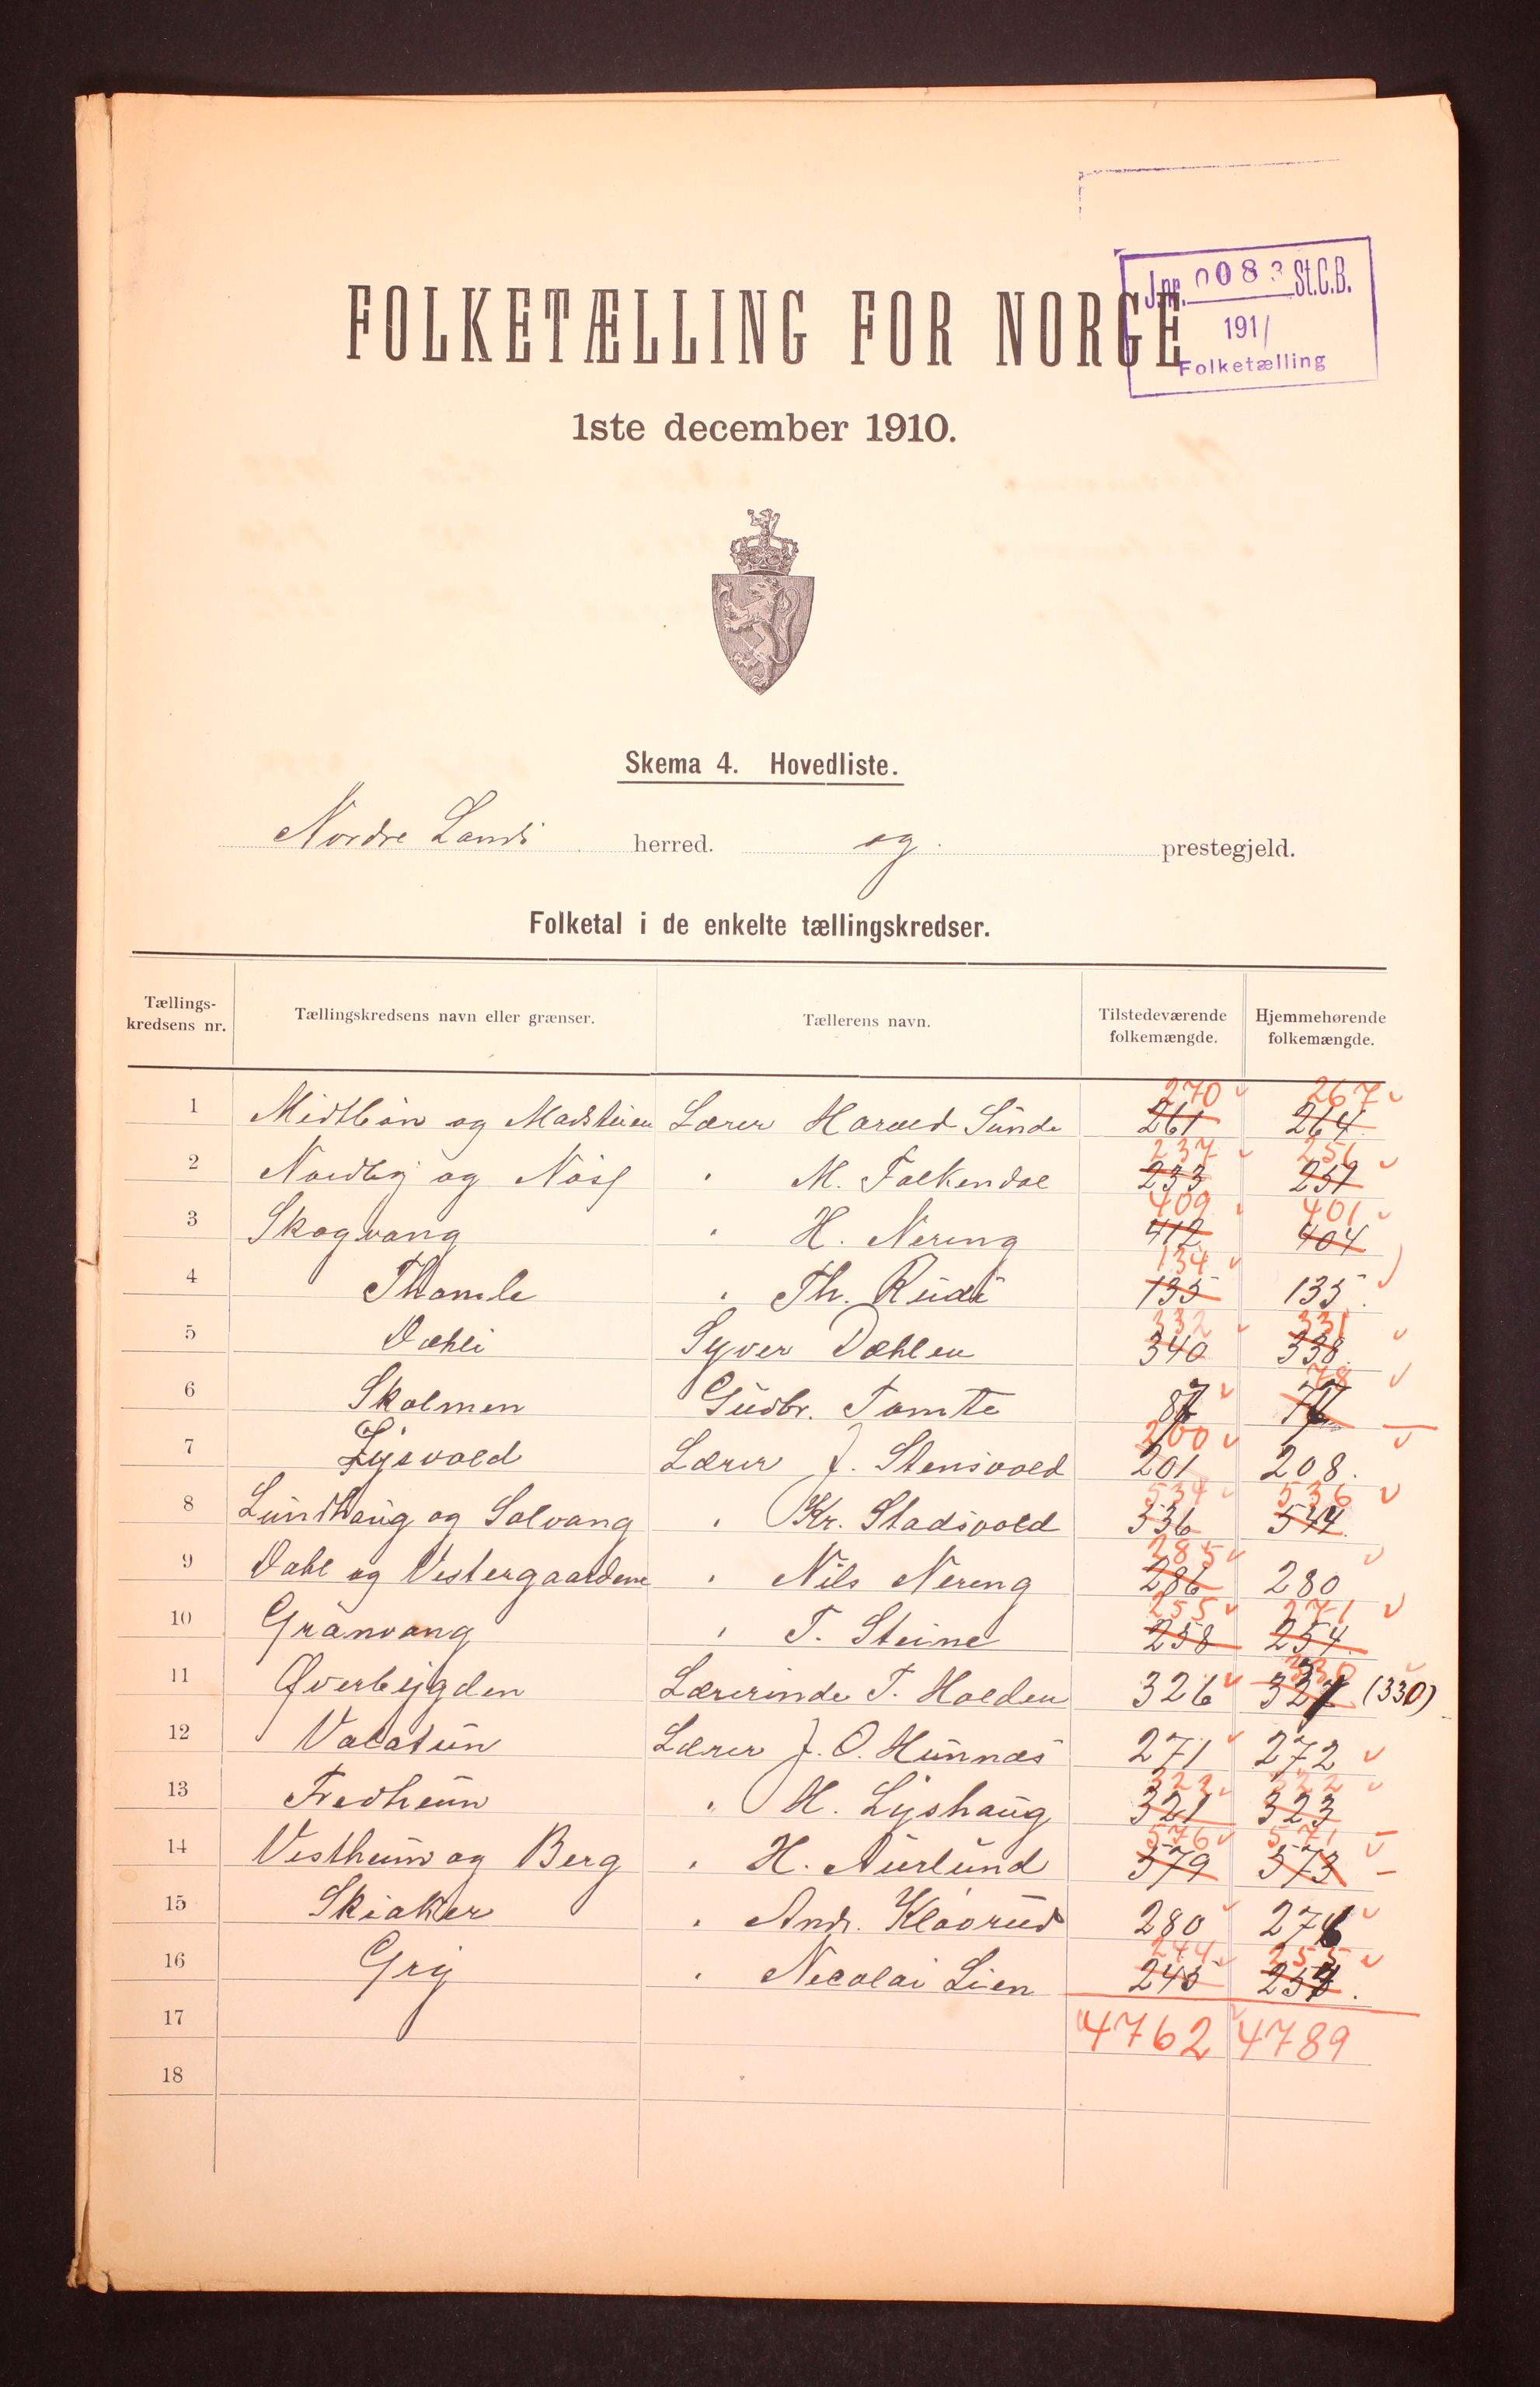 J.nr. 0083 St.C.B.
191/
Folketælling
FOLKETÆLLING FOR NORGE
1ste december 1910.
Skema 4. Hovedliste.
Nordre Lands herred. og prestegjeld.
Folketal i de enkelte tællingskredser.
Tællings-kredsens nr. Tællingskredsens navn eller grænser. Tællerens navn. Tilstedeværende folkemængde. Hjemmehørende folkemængde.
270 267
1 Midtbøn og Madsteien Lærer Harald Sunde 261 264
237 251
2 Nordby og Nøss " M. Falkendal 233 251
409 401
3 Skogvang " H. Nering 412 404
134
4 Thomle " Th. Rudi 135 135.
332 331
5 Dæhli Syver Dæhlen 340 338
78
6 Skolmen Gudbr. Tomte 87
200
7 Lysvold Lærer J. Stensvold 201 208.
534 536
8 Lundhaug og Solvang " Kr. Stadsvold 536 544
285
9 Dahl og Vestergaardene " Nils Nering 286 280
255 271
10 Granvang " T. Steine 258 254.
330
11 Øverbygden Lærerinde T. Holden 326 327 (330)
12 Valatun Lærer J. O. Hunnæs 271 272
323 322
13 Fredheim " H. Lyshaug 321 323
576 571
14 Vestheim og Berg " H. Aurlund 579 573
15 Skiaker " Andr. Kløvrud 280 276
244 255
16 Gry " Necolai Lien 245
17 4762 4789
18